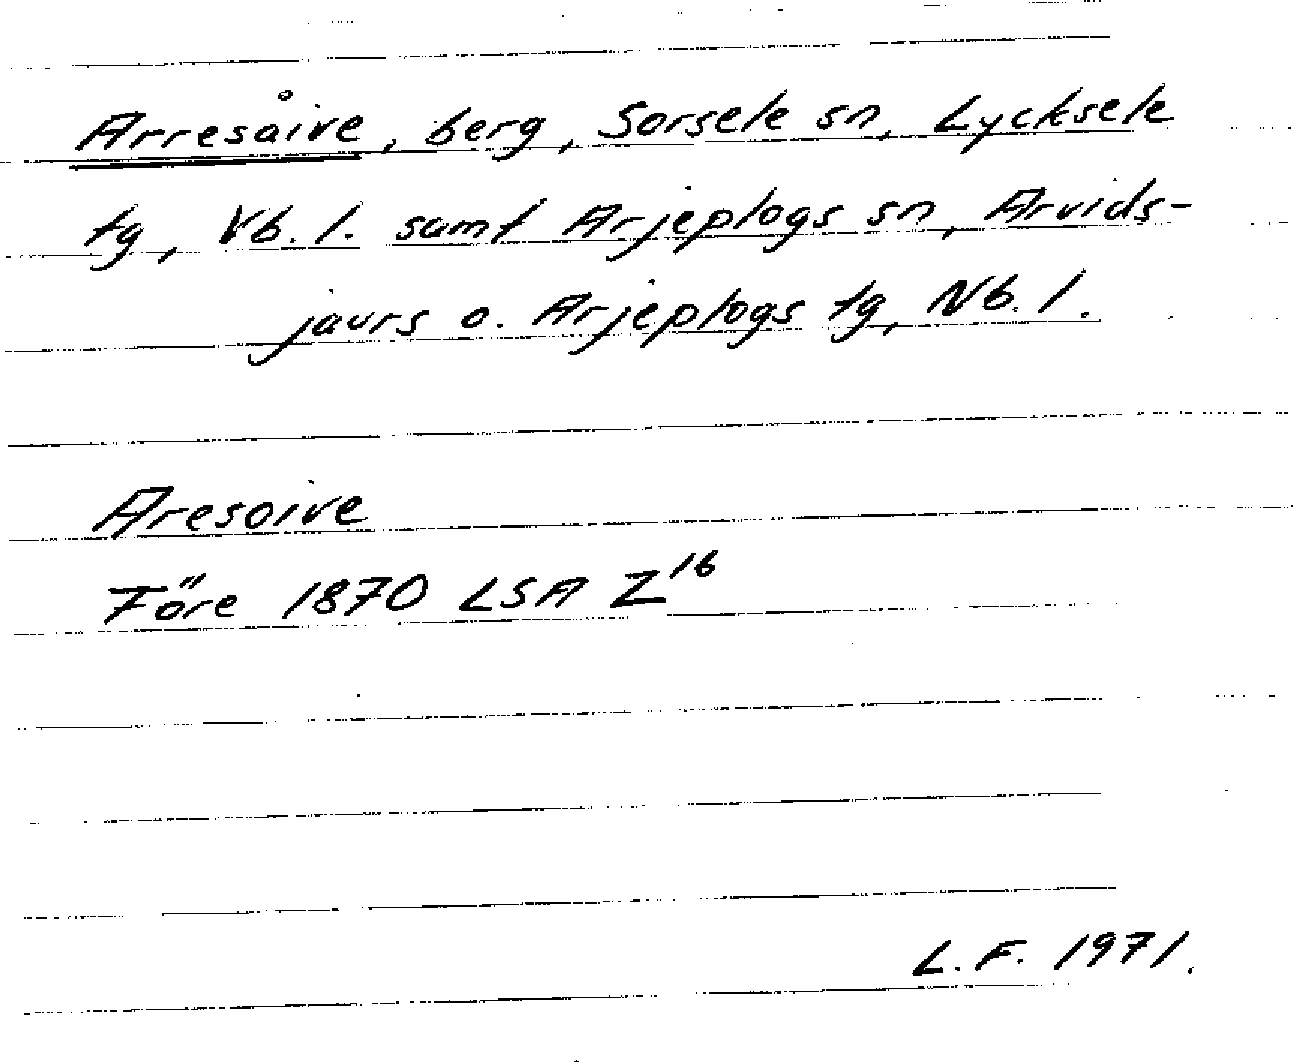 Arresåive, berg, Sorsele sn, Lycksele
tg, Vb. l. samt Arjeplogs sn, Arvids-
jaurs o. Arjeplogs tg, Nb. l.
Aresoive
Före 1870 LSA Z16
L.F. 1971.